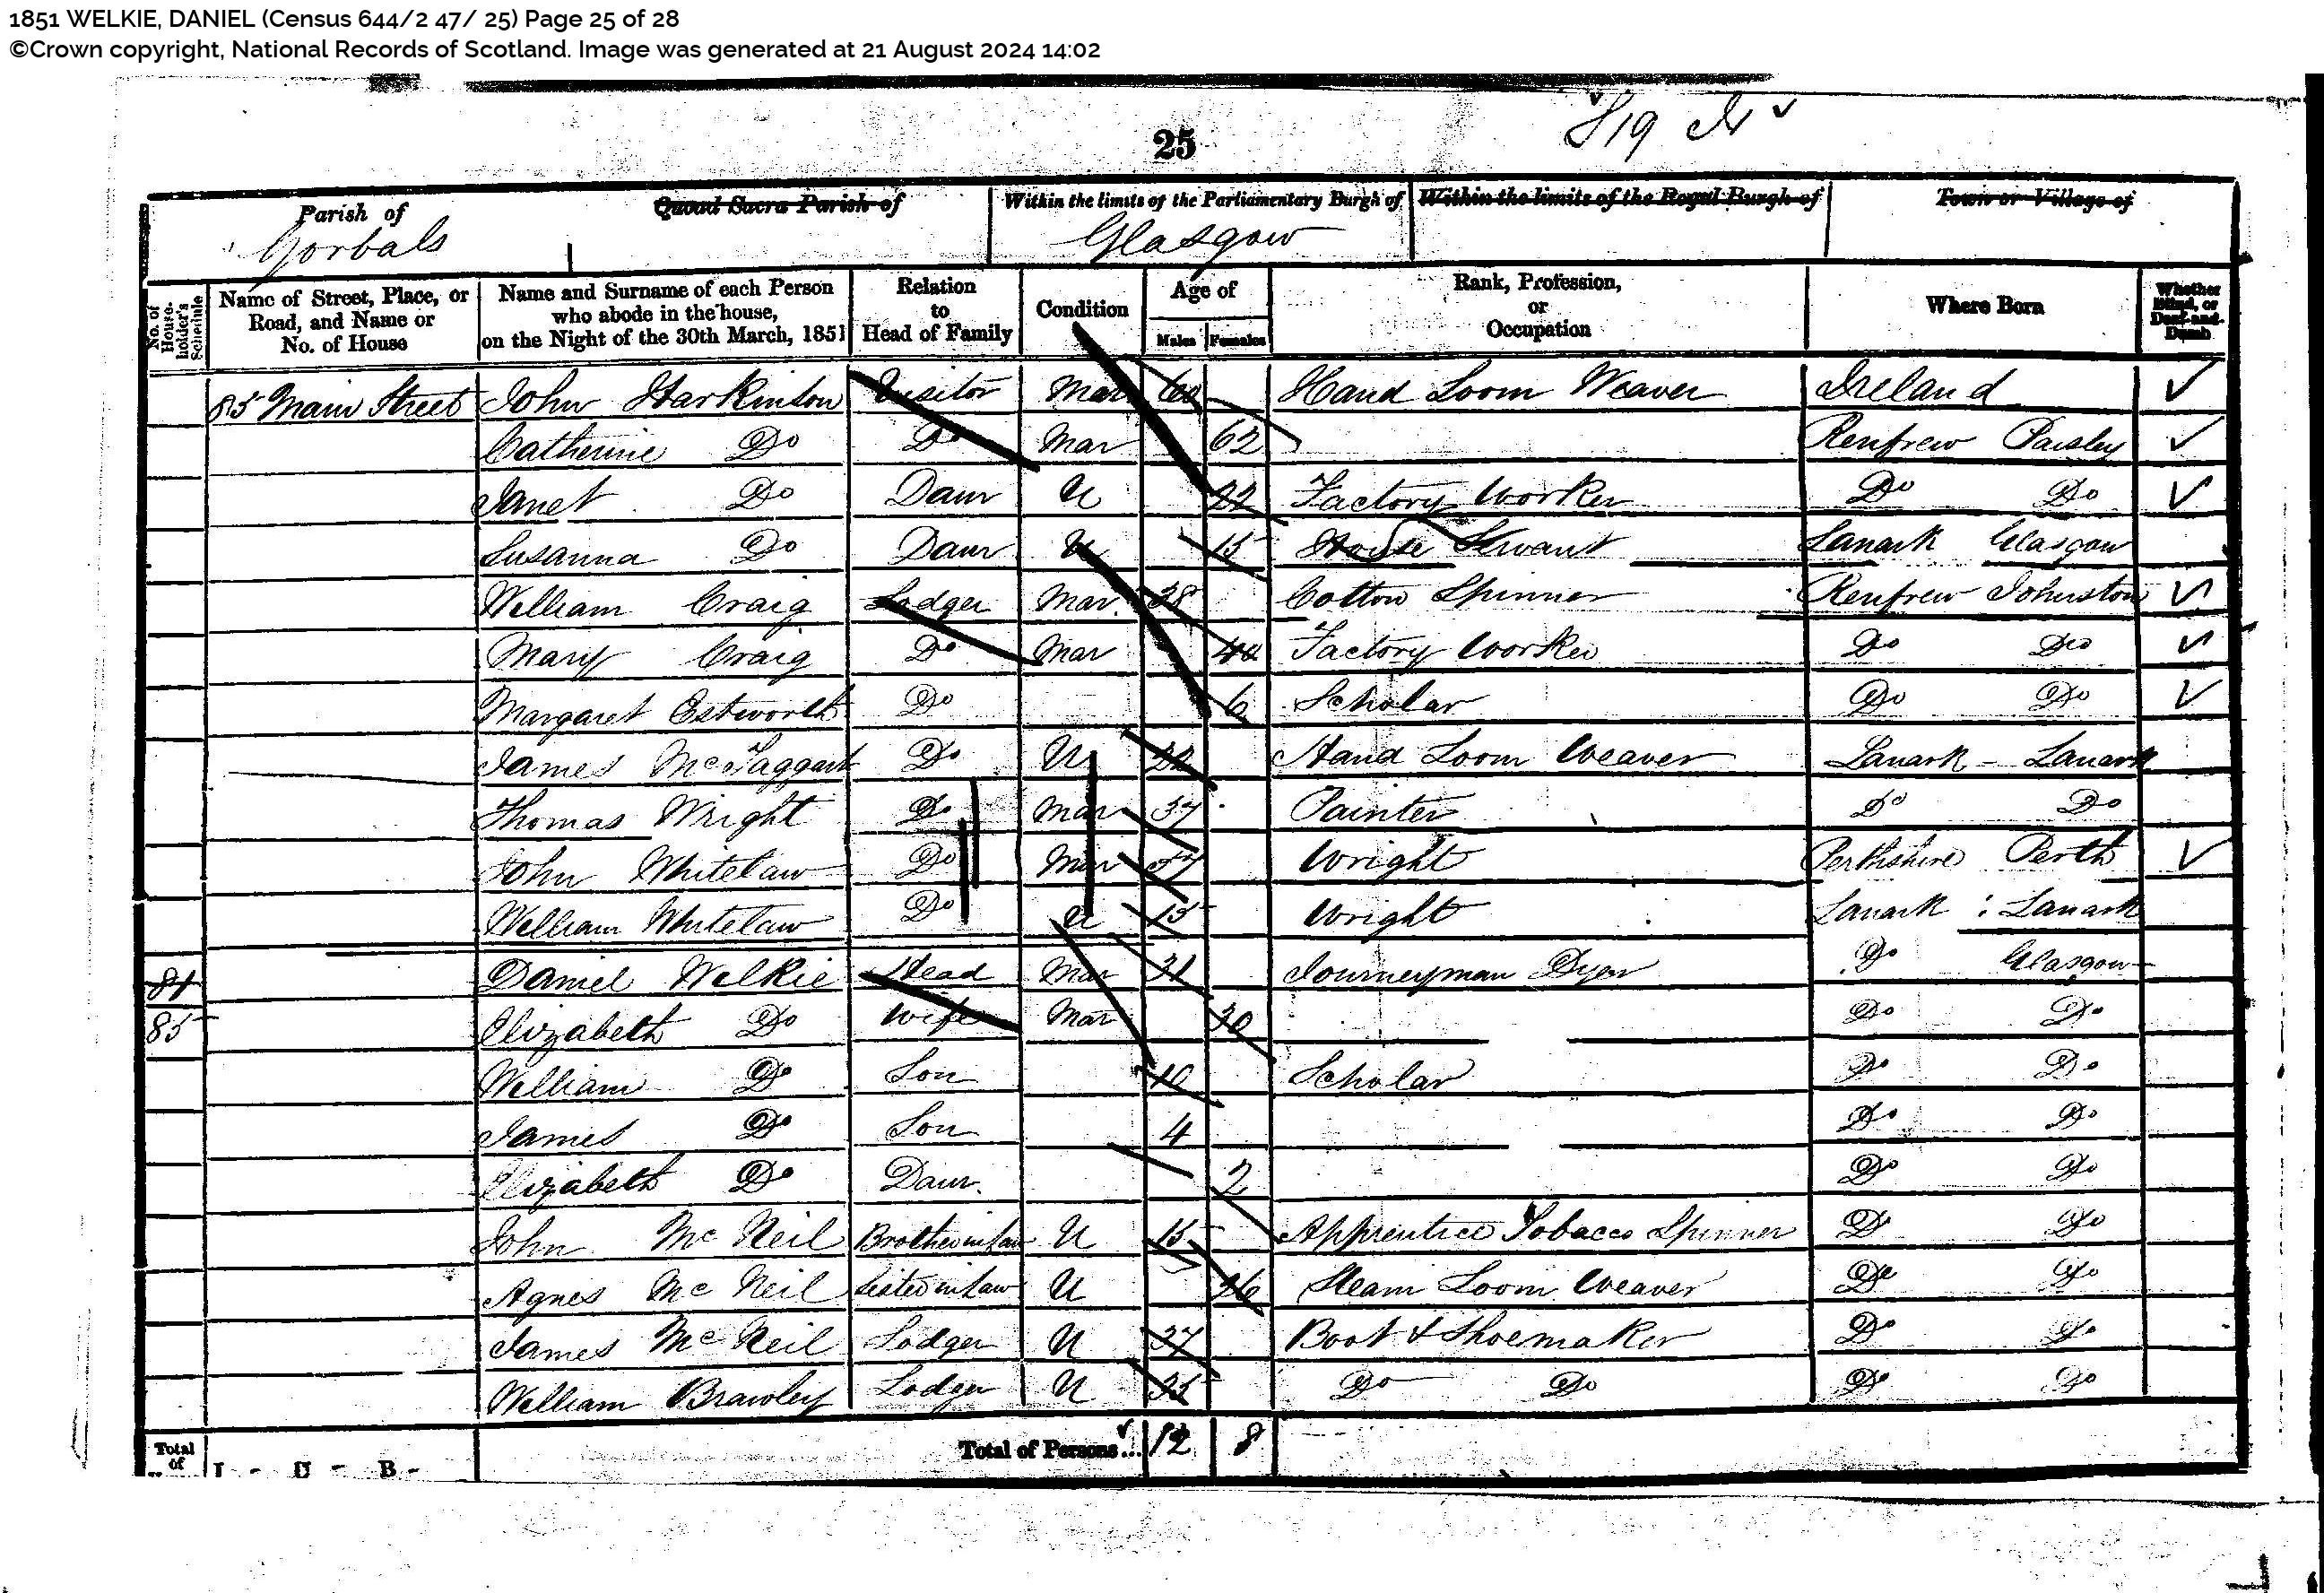 1851 WELKIE, DANIEL (Census 644/2 47/ 25) Page 25 of 28
©Crown copyright, National Records of Scotland. Image was generated at 21 August 2024 14:02
25
Parish of
Gorbals
Quoad Sacra Parish of
Within the limits of the Parliamentary Burgh of
Glasgow
Within the limits of the Royal Burgh of
Town or Village of
No. of House-holder's Schedule
Name of Street, Place, or Road, and Name or No. of House
Name and Surname of each Person who abode in the house, on the Night of the 30th March, 1851
Relation to Head of Family
Condition
Age of
Males Females
Rank, Profession, or Occupation
Where Born
Whether Blind, or Deaf-and-Dumb
85 Main Street John Harkinson Visitor Mar 60 Hand Loom Weaver Ireland
Catherine Do Do Mar 62 Renfrew Paisley
Janet Do Daur U 22 Factory Worker Do Do
Susanna Do Daur U 15 House Servant Lanark Glasgow
William Craig Lodger Mar. 38 Cotton Spinner Renfrew Johnston
Mary Craig Do Mar Factory Worker Do Do
Margaret Do 6 Scholar Do Do
James McTaggart Do U 22 Hand Loom Weaver Lanark - Lanark
Thomas Wright Do Mar 37 Painter Do Do
John Whitelaw Do Mar 57 Wright Perthshire Perth
William Whitelaw Do U 15 Wright Lanark : Lanark
81 Daniel Welkie Head Mar 31 Journeyman Dyer Do Glasgow
85 Elizabeth Do Wife Mar 30 Do Do
William Do Son 10 Scholar Do Do
James Do Son 4 Do Do
Elizabeth Do Daur. 2 Do Do
John McNeil Brother in Law U 15 Apprentice Tobacco Spinner Do Do
Agnes McNeil Sister in Law U 26 Steam Loom Weaver Do Do
James McNeil Lodger U 37 Boot & Shoemaker Do Do
William Brawley Lodger U 35 Do Do Do Do
Total of
I - U - B -
Total of Persons... 12 8